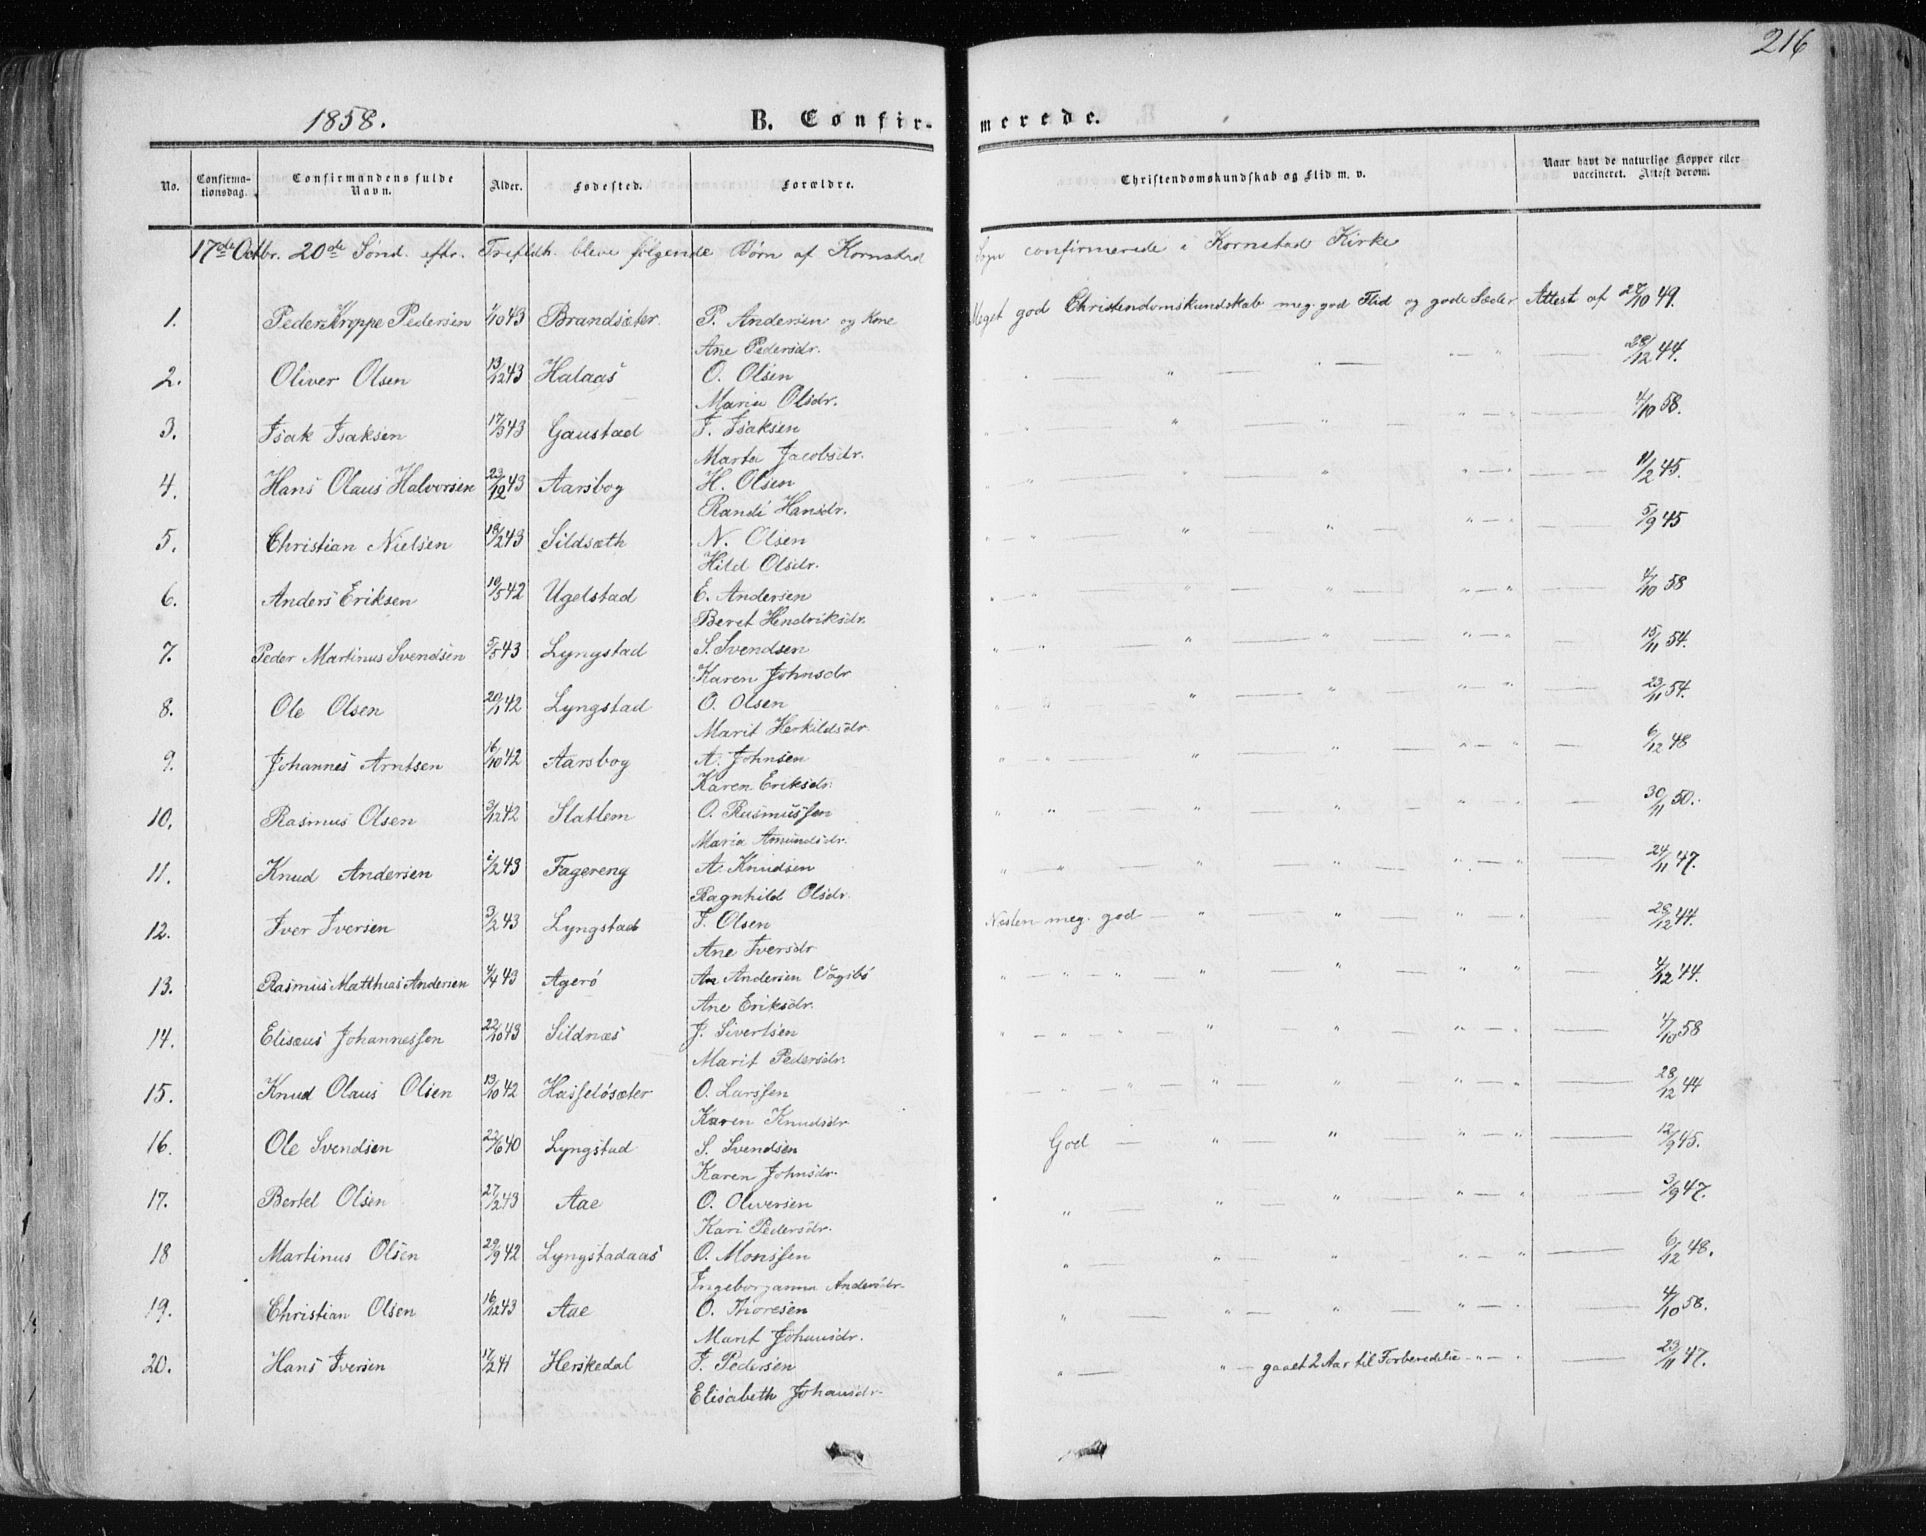 216
1858. B. Confirmerede.
No. Confirmationsdag. Confirmandens fulde Navn. Alder. Fødested. Forældre. Christendomskundskab og Flid m. v. Naar havt de naturlige Kopper eller vaccineret. Attest derom.
17de Octbr. 20de Sønd. eftr. Trefldh. bleve følgende Børn af Kornstad Sogn confirmerede i Kornstad Kirke
1. Peder Kroppe Pedersen 1/10 43 Brandsæter. P. Andersen og Kone Meget god Christendomskundskab meg. god Flid og gode Sæder Attest af 27/10 49.
Ane Pedersdr.
2. Oliver Olsen 13/12 43 Halaas O. Olsen " " " 28/12 44.
Maria Olsdr.
3. Isak Isaksen 17/5 43 Gaustad I. Isaksen " " " 4/10 58.
Marta Jacobsdr.
4. Hans Olaus Halvorsen 23/12 43 Aarsbog H. Olsen " " " 11/2 45.
Randi Hansdr.
5. Christian Nielsen 18/2 43 Sildsæth N. Olsen " " " 5/9 45
Hild Olsdr.
6. Anders Eriksen 10/5 42 Ugelstad E. Andersen " " " 4/10 58
Beret Hendriksdr.
7. Peder Martinus Svendsen 5/5 43 Lyngstad S. Svendsen " " " 15/11 54.
Karen Johnsdr
8. Ole Olsen 20/1 42 Lyngstad O. Olsen " " " 23/11 54.
Marit Herkildsdr.
9. Johannes Arntsen 16/10 42 Aarsbog A. Johnsen " " " 6/12 48
Karen Eriksdr.
10. Rasmus Olsen 3/12 42 Statlem O. Rasmussen " " " 30/11 50.
Maria Amundsdr.
11. Knud Andersen 1/2 43 Fagereng A. Knudsen " " " 24/11 47.
Ragnhild Olsdr.
12. Iver Iversen 3/2 43 Lyngstad I. Olsen Næsten meg. god " " " 28/12 44.
Ane Iversdr
13. Rasmus Matthias Andersen 4/4 43 Agerö An Andersen Vagsbö " " " 4/12 44.
Ane Eriksdr.
14. Elisæus Johannessen 22/10 43 Sildnæs J. Sivertsen " " " 4/10 58
Marit Pedersdr.
15. Knud Olaus Olsen 13/10 42 Hasselösæter O. Larssen " " " 28/12 44
Karen Knudsdr
16. Ole Svendsen 22/6 40 Lyngstad S. Svendsen God " " " 12/9 45.
Karen Johnsdr.
17. Bertel Olsen 27/2 43 Aae O. Oliversen " " " 3/9 47.
Kari Pedersdr.
18 Martinus Olsen 29/9 42 Lyngstadaas O. Monssen " " " 6/12 48.
Ingeborganna Andersdr.
19. Christian Olsen 16/12 43 Aae O. Thoresen " " " 4/10 58.
Marit Johansdr.
20. Hans Iversen 17/2 41 Herskedal I. Pedersen " " gaaet 2 Aar til Forberedelse " " 23/11 47.
Elisabeth Johansdr.